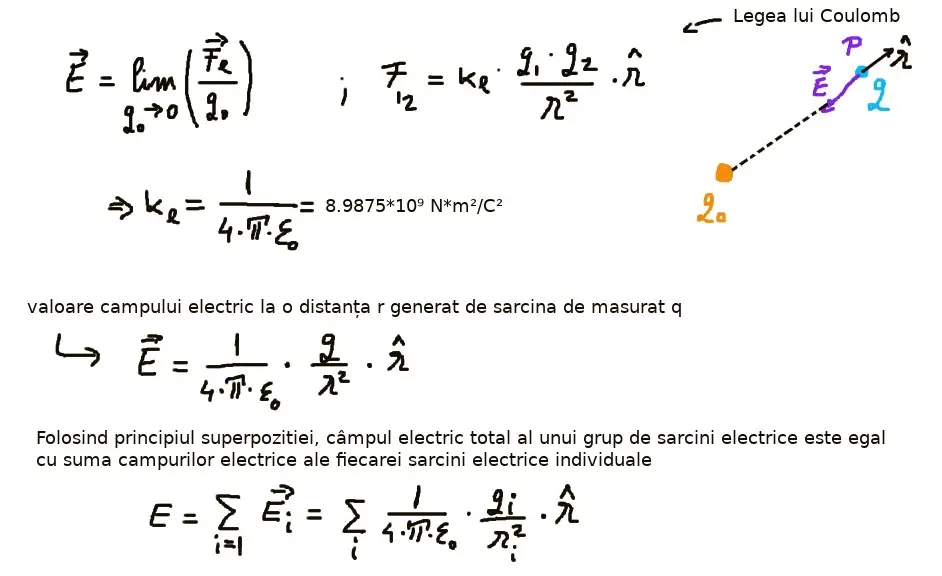 Legea lui Coulomb
E⃗ = lim q₀→0 (F⃗e / q₀) ; F₁₂ = ke · q₁ · q₂ / r² · r̂
P
r̂
E⃗
q
q₀
⇒ ke = 1 / 4·π·ε₀ = 8.9875*10⁹ N*m²/C²
valoare campului electric la o distanța r generat de sarcina de masurat q
E⃗ = 1 / 4·π·ε₀ · q / r² · r̂
Folosind principiul superpozitiei, câmpul electric total al unui grup de sarcini electrice este egal
cu suma campurilor electrice ale fiecarei sarcini electrice individuale
E = Σ i=1 E⃗i = Σ i 1 / 4·π·ε₀ · qi / ri² · r̂